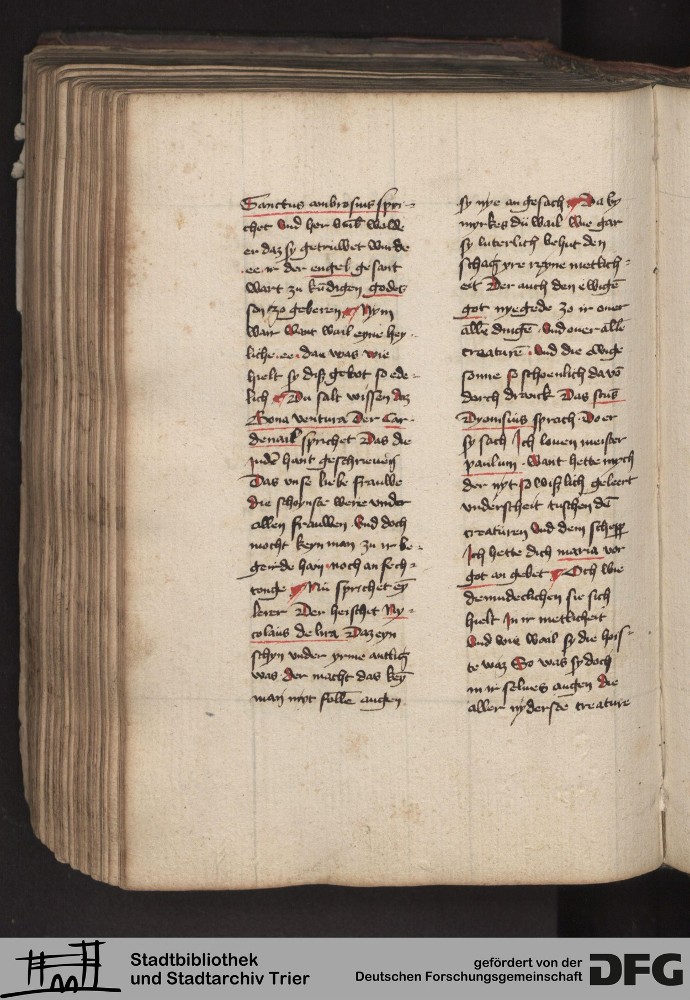 Sanctus ambrosius spri-
chet Vnd her
er daz sy getruwet wurde
ee ir der engel gesant
wart zu kūdigen godes
son zo geberen Nym
war Want wail eyne hey
liche ee dan was wie
hielt sy diß gebot so ede-
lich Du salt wissen daz
Bona ventura Der Car-
denail sprichet Das die
Judē haint geschreuen
Das vnse liebe frauwe
die schoynste were vnder
allen frauwen Vnd doch
mocht keyn man zu ir be-
gerde han noch an fech-
tonge Nu sprichet eȳ
lerer Der heischet Ny-
colaus de lira Daz eyn
schyn vnder yrme antlitz
was der macht das keȳ
man myt follē augen
sy nye an gesach Da by
myrkes du wail Wie gar
sy luterlich behut den
schatz yre reyne metlich-
eit Der auch den ewigē
got nyegede zo ir ouer
allē dinge Vnd ouer alle
creaturē Vnd die ewige
sonne so schoenlich da vō
dorch dranck Das scūs
Dyonisius sprach Do er
sy sach Ich louen meister
paulum Want hette mych
der nyt so wißlich geleert
vnderscheit tuschen dē
creaturen Vnd dem schepp
Ich hette dich maria vor
got an gebet Och wie
demudeclichen sie sich
hielt In ir metlicheit
Vnd wie wail sy die hois-
te waz So was sy doch
in ir selues augen die
aller nyderste creature
Stadtbibliothek
und Stadtarchiv Trier
gefördert von der
Deutschen Forschungsgemeinschaft
DFG